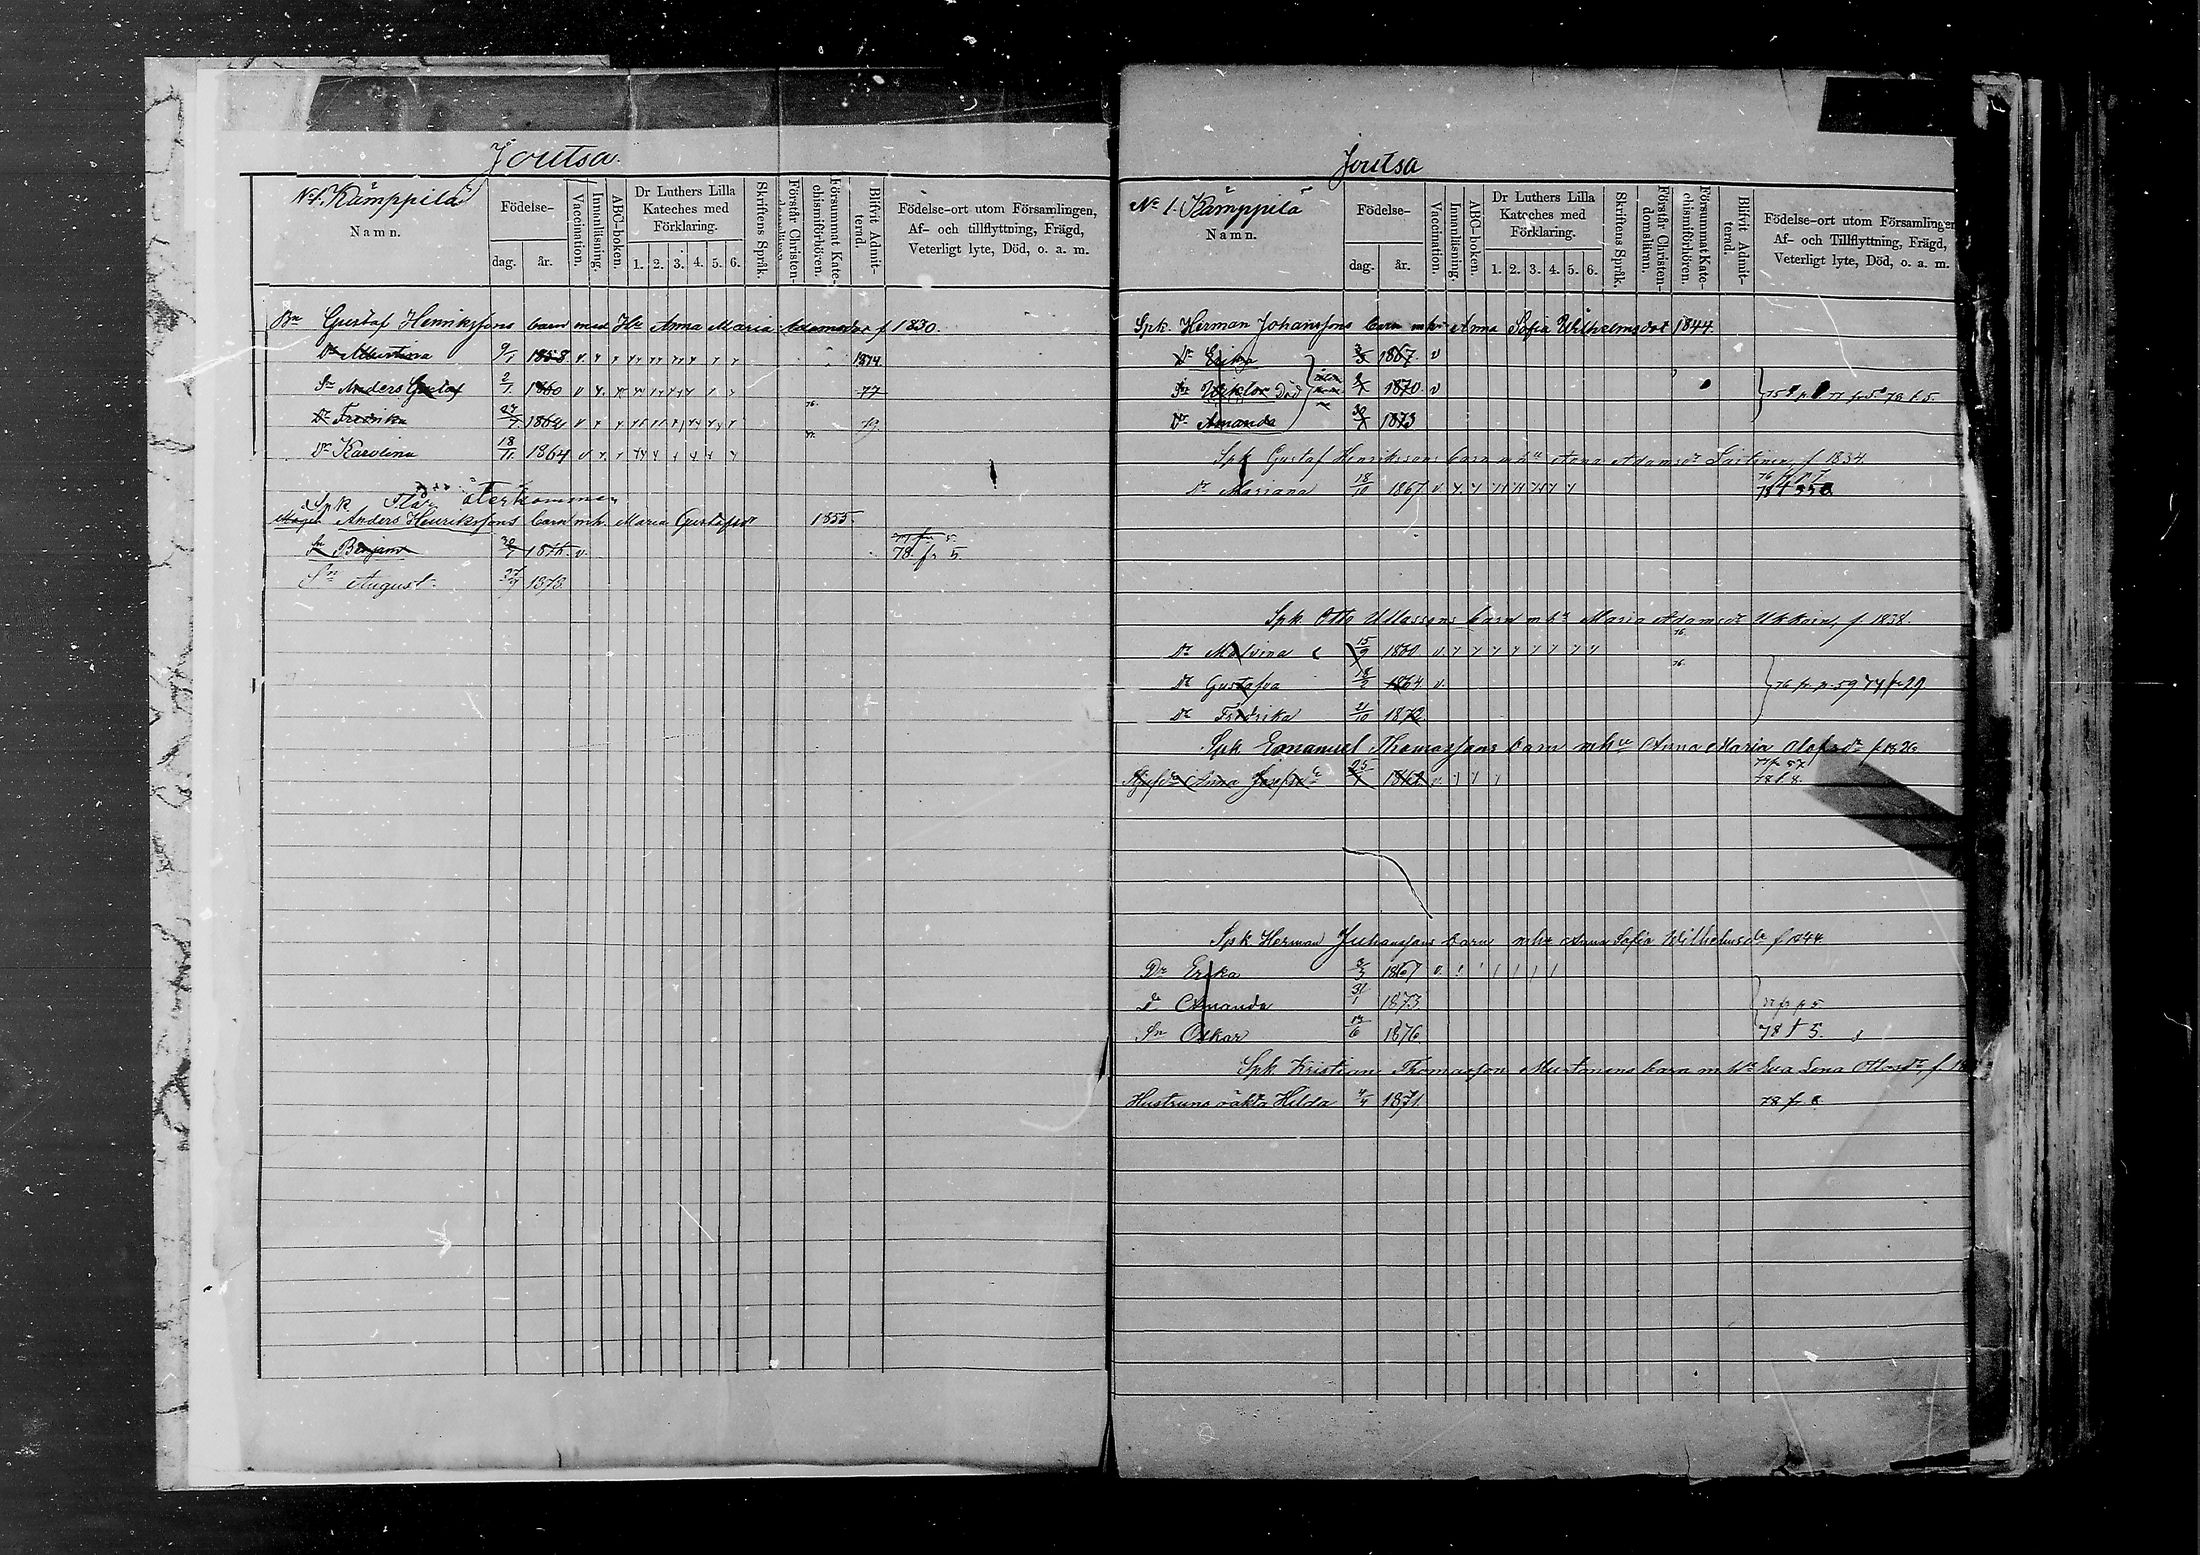 Joutsa.
No 1. Kämppilä
Namn.
Födelse-
dag. år.
Vaccination.
Innanläsning.
ABC-boken.
Dr Luthers Lilla Kateches med Förklaring.
1. 2. 3. 4. 5. 6.
Skriftens Språk.
Förstår Christen-
Försummat Kate-chismiförhören.
Blifvit Admit-terad.
Födelse-ort utom Församlingen,
Af- och tillflyttning, Frägd,
Veterligt lyte, Död, o. a. m.
Bn Gustaf Henrikssons barn med Hu Anna Maria Adamsdot f 1830.
Dr Albertina 9/1 1858 v. 1874.
Sn Anders Gustaf 2/1 1860 v 77
Dr Fredrika 1862 v 76. 79.
Dr Karolina 18/11 1864 v 77.
Spk Flår återkommen
Anders Henrikssons barn mh. Maria Gustafsdr 1855.
Sn Benjam 30/7 1876. v. 78. fr 5.
Sn August 27/9 1878
Joutsa
No 1. Kämppilä
Namn.
Födelse-
dag. år.
Vaccination.
Innanläsning.
ABC-boken.
Dr Luthers Lilla Kateches med Förklaring.
1. 2. 3. 4. 5. 6.
Skriftens Språk.
Förstår Christen-domsläran.
Försummat Kate-chismiförhören.
Blifvit Admit-terad.
Födelse-ort utom Församlingen,
Af- och Tillflyttning, Frägd,
Veterligt lyte, Död, o. a. m.
Spk. Herman Johanssons barn mhu Anna Sofia Wilhelmsdot 1844.
Dr Erika 3/3 1867. v
Sn Wiktor Död 1870 v
Dr Amanda 1873
Spk Gustaf Henrikssons barn mhu Anna Adamsdr f 1834.
Dr Mariana 18/10 1867 v.
Spk. Otto Ullassons barn mhu Maria Adamsdr Ukkoin, f. 1838.
Dr Malvina 15/9 1860 v. 76.
Dr Gustafva 18/2 1864 v. 76. 76 fr p. 59 77 fr 29.
Dr Fredrika 21/10 1872
Spk Emanuel Thomassons barn mhu Anna Maria Olofsdr f 1826
Anna Josefsdr 25/1 1862 v. 78 f 8.
Spk Herman Juhanssons barn mhu Anna Sofia Wilhelmsdr f 1844
Dr Erika 3/3 1867 v.
Dr Amanda 31/1 1873 77 fr p 5
Sn Oskar 13/6 1876 78 f 5.
Spk Kristian Thomasson Murtonens barn m hu Eva Lena Ottosdr f 18
Hustruns oäkta Hilda 4/4 1871 78 fr 8